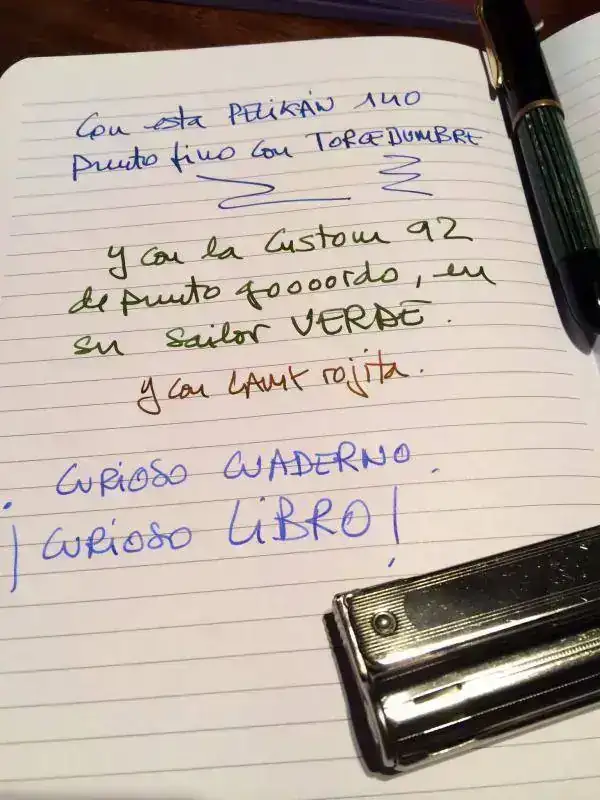 Con esta PELIKAN 140
punto fino con TORCEDUMBRE
y con la Custom 92
de punto goooordo, en
su sailor VERDE.
y con LAMY rojita.
CURIOSO CUADERNO.
¡CURIOSO LIBRO!